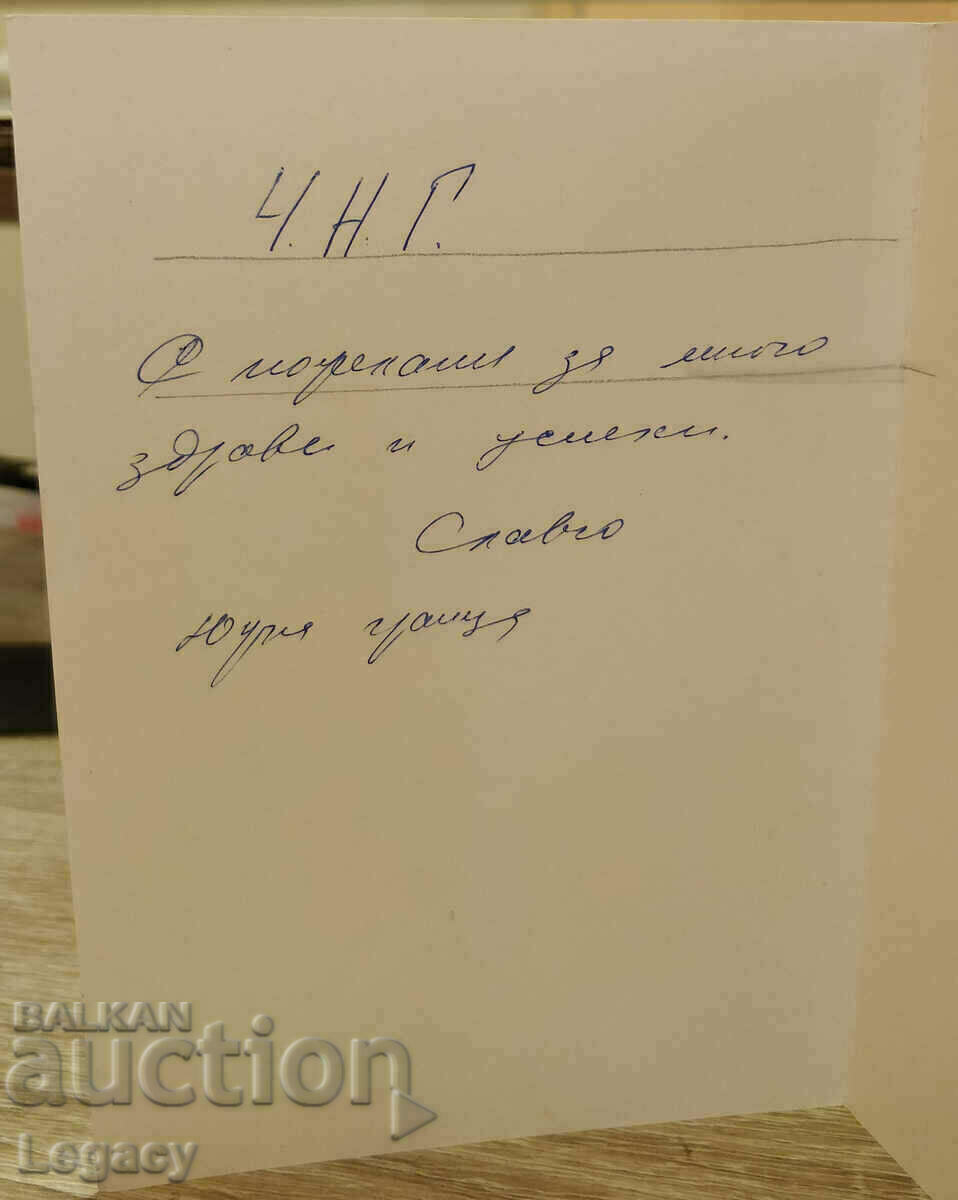 Ч.Н.Г.
С пожелания за много
здраве и успехи.
Славчо
BALKAN
auction
Legacy